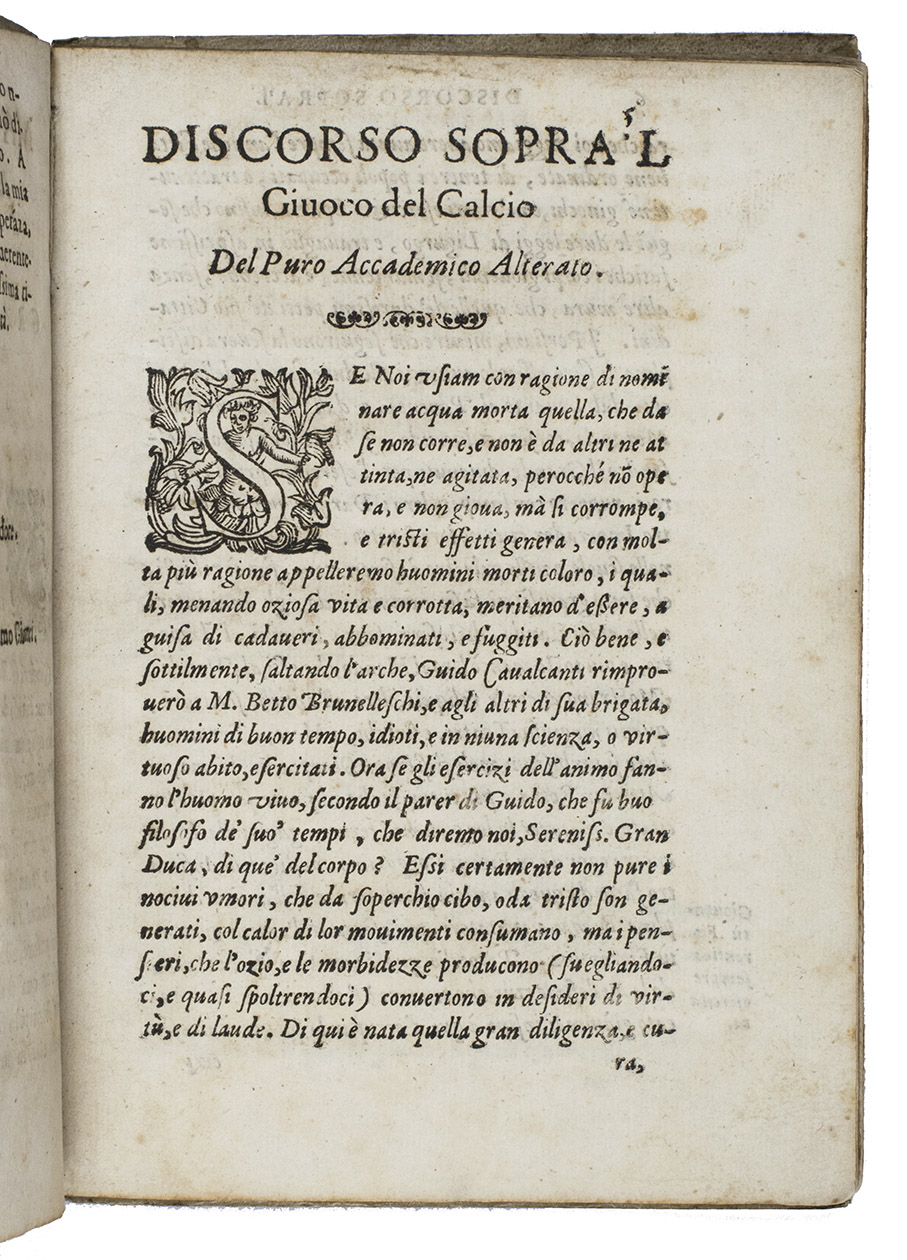 DISCORSO SOPRA'L
Giuoco del Calcio
Del Puro Accademico Alterato.
SE Noi vsiam con ragione di nomi
nare acqua morta quella, che da
ſe non corre, e non è da altri ne at
tinta, ne agitata, perocché nõ ope
ra, e non gioua, mà ſi corrompe,
e triſti effetti genera, con mol-
ta più ragione appelleremo huomini morti coloro, i qua-
li, menando ozioſa vita e corrotta, meritano d'eßere, a
guiſa di cadaueri, abbominati, e fuggiti. Ciò bene, e
ſottilmente, ſaltando l'arche, Guido Caualcanti rimpro-
uerò a M. Betto Brunelleſchi, e agli altri di ſua brigata,
huomini di buon tempo, idioti, e in niuna ſcienza, o vir-
tuoſo abito, eſercitati. Ora ſe gli eſercizi dell'animo fan-
no l'huomo viuo, ſecondo il parer di Guido, che fu buo
filoſofo de' ſuo' tempi, che diremo noi, Sereniſs. Gran
Duca, di que' del corpo? Eſſi certamente non pure i
nociui vmori, che da ſoperchio cibo, o da triſto ſon ge-
nerati, col calor di lor mouimenti conſumano, ma i pen-
ſieri, che l'ozio, e le morbidezze producono (ſuegliando-
ci, e quaſi ſpoltrendoci) conuertono in deſideri di vir-
tù, e di laude. Di qui è nata quella gran diligenza, e cu-
ra,